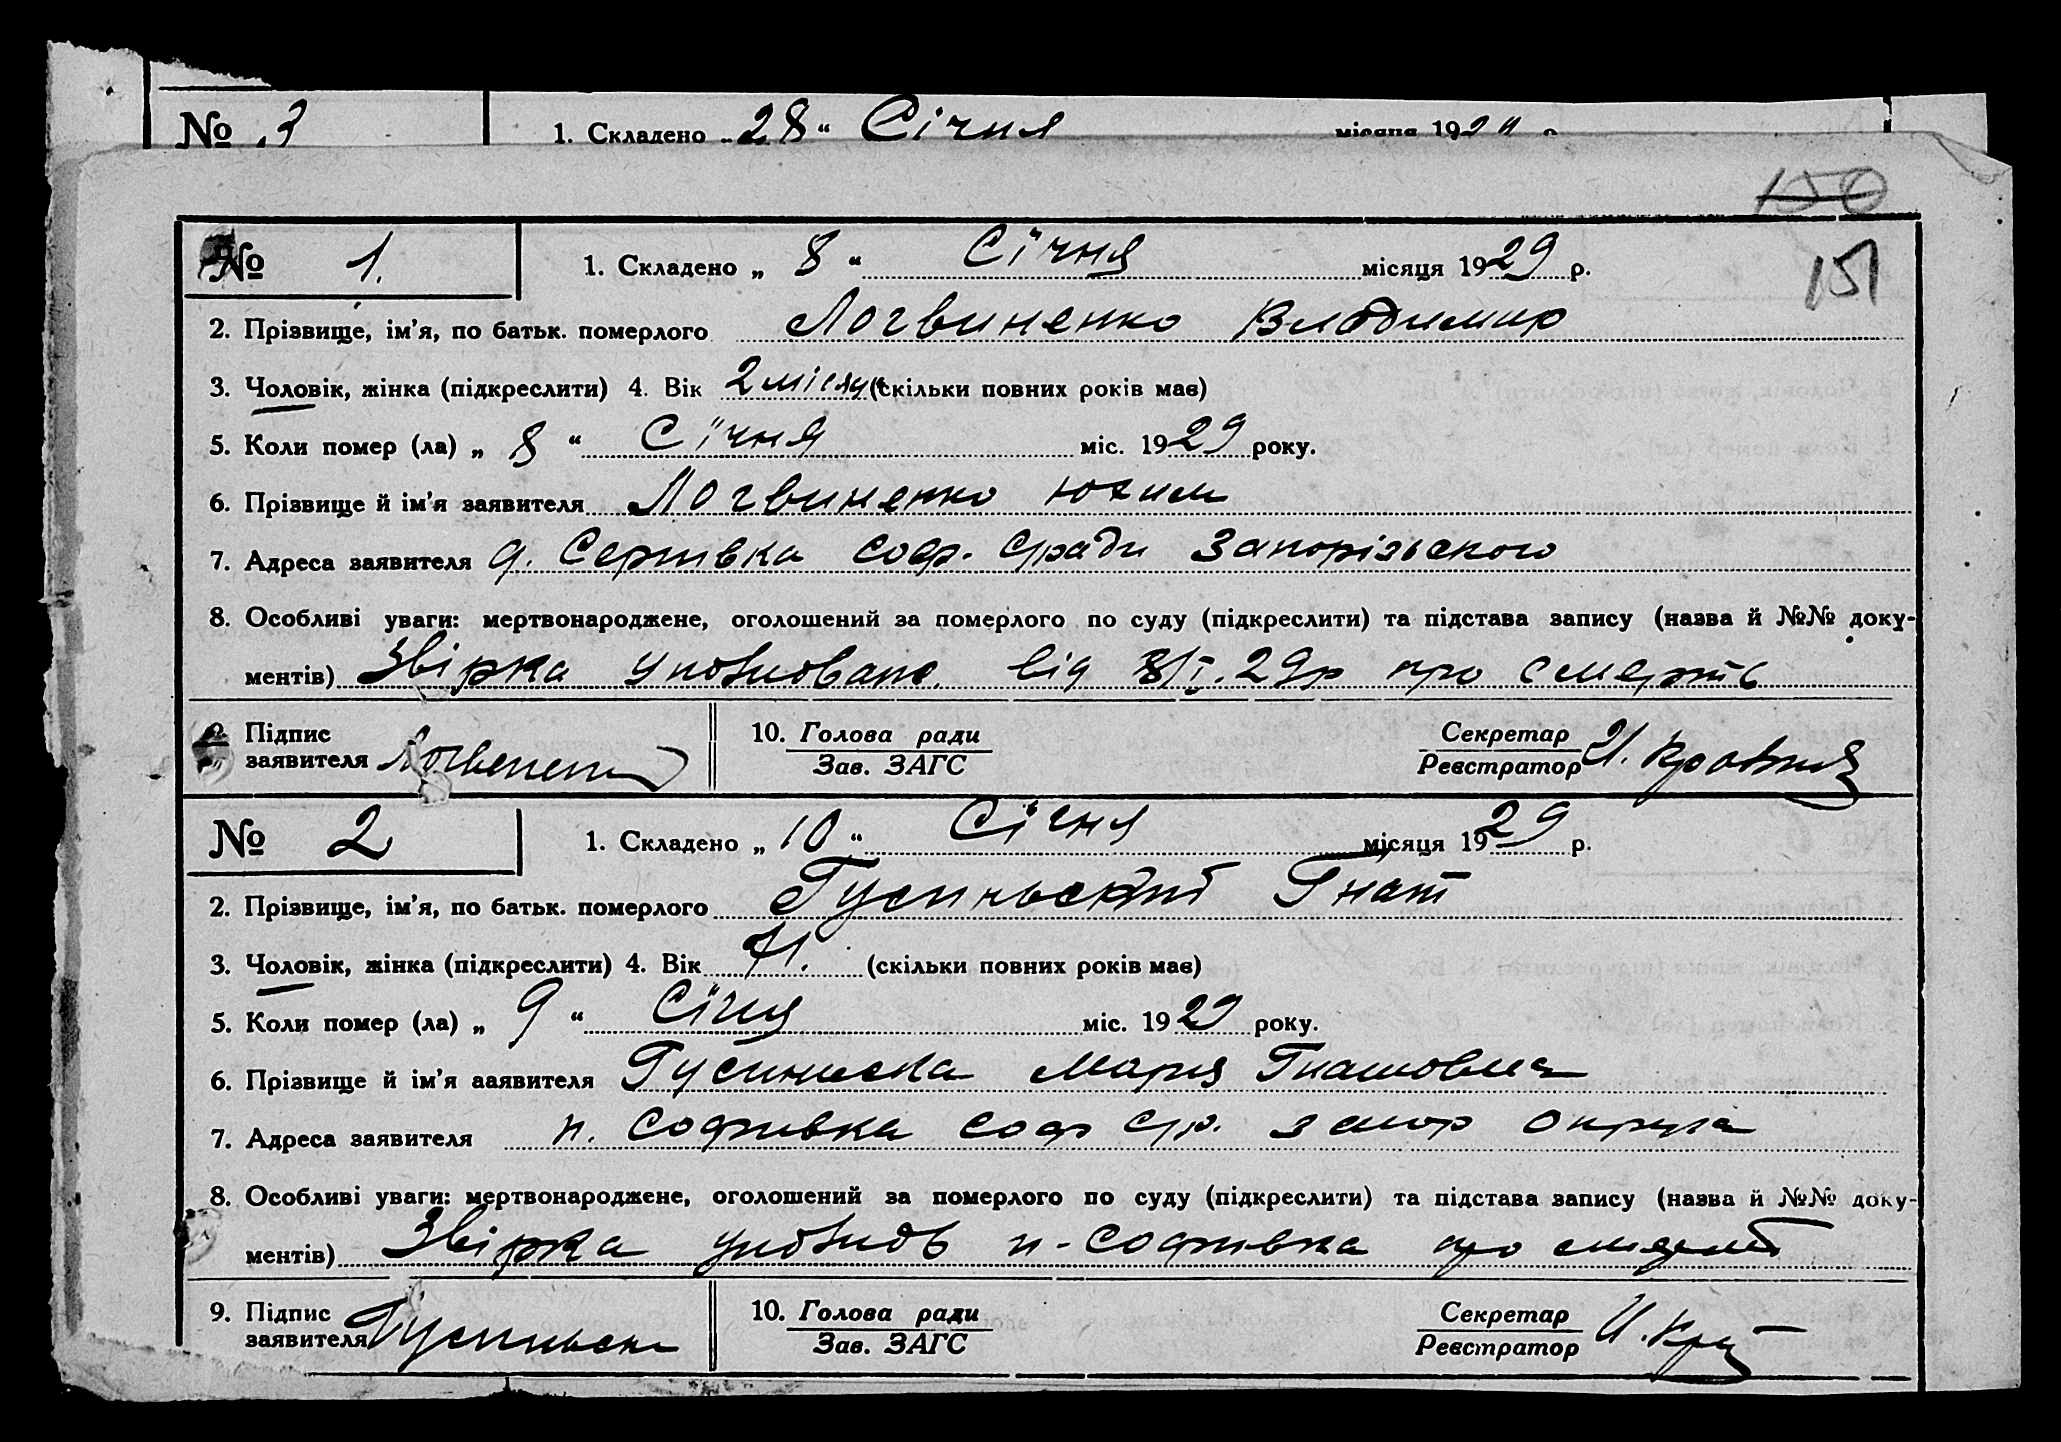 № 3 1. Складено „28“ Січня місяця 192 р.
150
№ 1. 1. Складено „ 8 “ Січня місяця 1929 р. 151
2. Прізвище, ім’я, по батьк. померлого Логвиненко Владимир
3. Чоловік, жінка (підкреслити) 4. Вік 2 місяц (скільки повних років має)
5. Коли помер (ла) „ 8 “ Січня міс. 1929 року.
6. Прізвище й ім’я заявителя Логвиненко Юхим
7. Адреса заявителя Соф. Сради Запорізького
8. Особливі уваги: мертвонароджене, оголошений за померлого по суду (підкреслити) та підстава запису (назва й №№ доку-
ментів) Звірка уповноваж. від 8/I.29р про смерть
9. Підпис
заявителя 10. Голова ради Секретар И. Кравця
Зав. ЗАГС Реєстратор
№ 2 1. Складено „ 10 “ Січня місяця 1929 р.
2. Прізвище, ім’я, по батьк. померлого Гусиньский Гнат
3. Чоловік, жінка (підкреслити) 4. Вік 71. (скільки повних років має)
5. Коли помер (ла) „ 9 “ Січня міс. 1929 року.
6. Прізвище й ім’я заявителя Гусинська Мария Гнатовна
7. Адреса заявителя п. Софиевка Соф Ср. Запор Округа
8. Особливі уваги: мертвонароджене, оголошений за померлого по суду (підкреслити) та підстава запису (назва й №№ доку-
ментів) Звірка п-Софиевка про смерть
9. Підпис
заявителя Гусиньск 10. Голова ради Секретар
Зав. ЗАГС Реєстратор